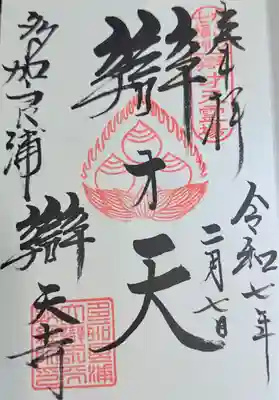 奉拝
令和七年
二月七日
辯才天
多加良浦
辯天寺